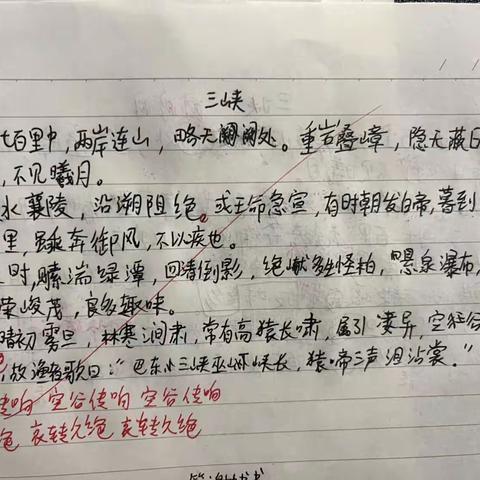 三峡
七百里中，两岸连山，略无阙处。重岩叠嶂，隐天蔽日
，不见曦月。
水襄陵，沿溯阻绝。或王命急宣，有时朝发白帝，暮到
里，虽乘奔御风，不以疾也。
时，素湍绿潭，回清倒影，绝巘多生怪柏，悬泉瀑布，
荣峻茂，良多趣味。
晴初霜旦，林寒涧肃，常有高猿长啸，属引凄异，空谷
，故渔者歌曰：“巴东三峡巫山峡长，猿啼三声泪沾裳。”
传响 空谷传响 空谷传响
绝 哀转久绝 哀转久绝